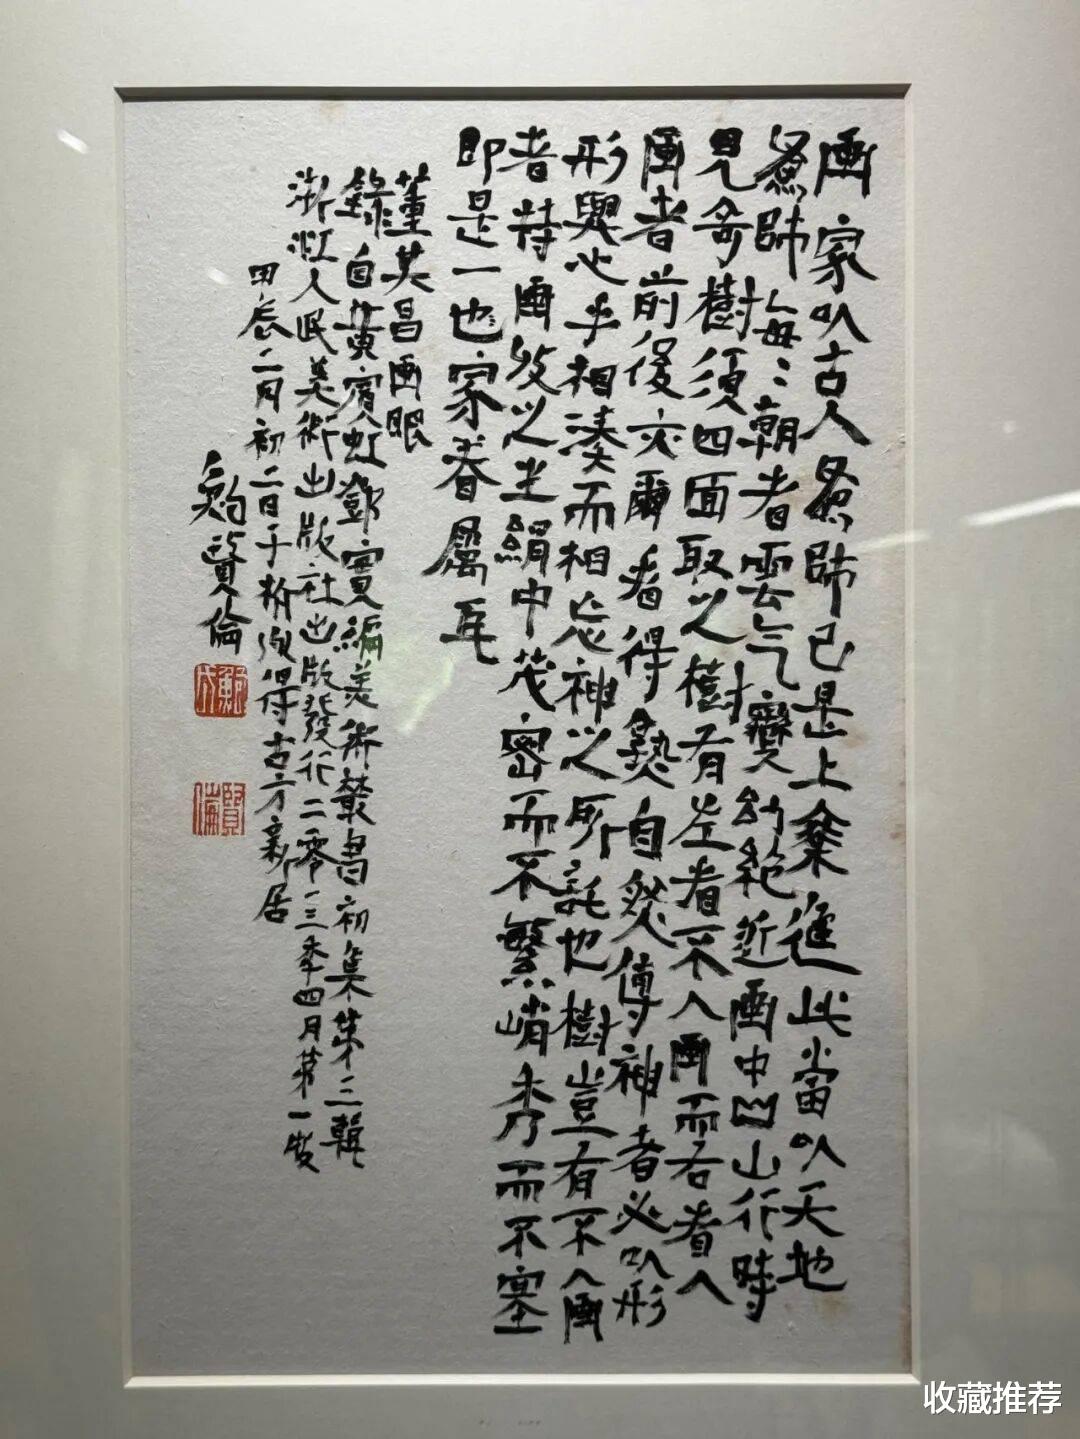 画家以古人為師已是上乘進此當以天地
為師每〻朝看雲气變幻絕近画中山山行時
見奇樹須四面取之樹有左看不入画而右看入
画者前後亦爾看得熟自然傳神者必以形
形與心手相湊而相忘神之所託也樹豈有不入画
者特画收之生絹中茂密而不繁峭秀而不塞
即是一也家眷屬耳
董其昌画眼
錄自黃賓虹鄧實編美術叢書初集第三輯
浙江人民美術出版社出版發行二零一三季四月第一版
甲辰二月初二日于得古方新居
鮑賢倫
鮑
賢倫
收藏推荐